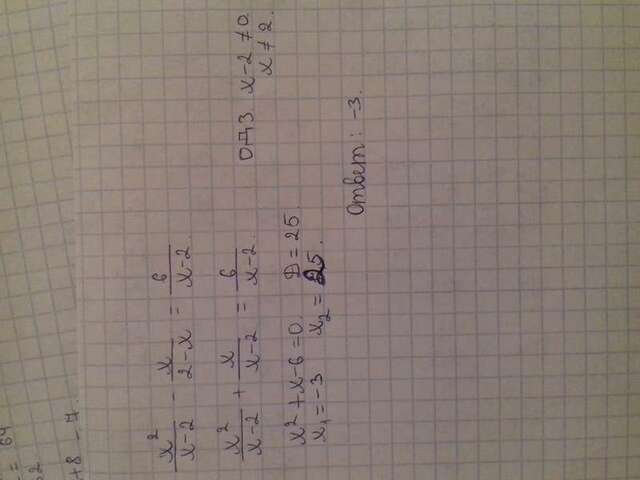 = 64
62
+8 - 7.
x²/(x-2) - x/(2-x) = 6/(x-2).
x²/(x-2) + x/(x-2) = 6/(x-2).
ОДЗ x-2 ≠ 0.
x ≠ 2.
x² + x - 6 = 0. D = 25.
x₁ = -3 x₂ = 25.
Ответ: -3.